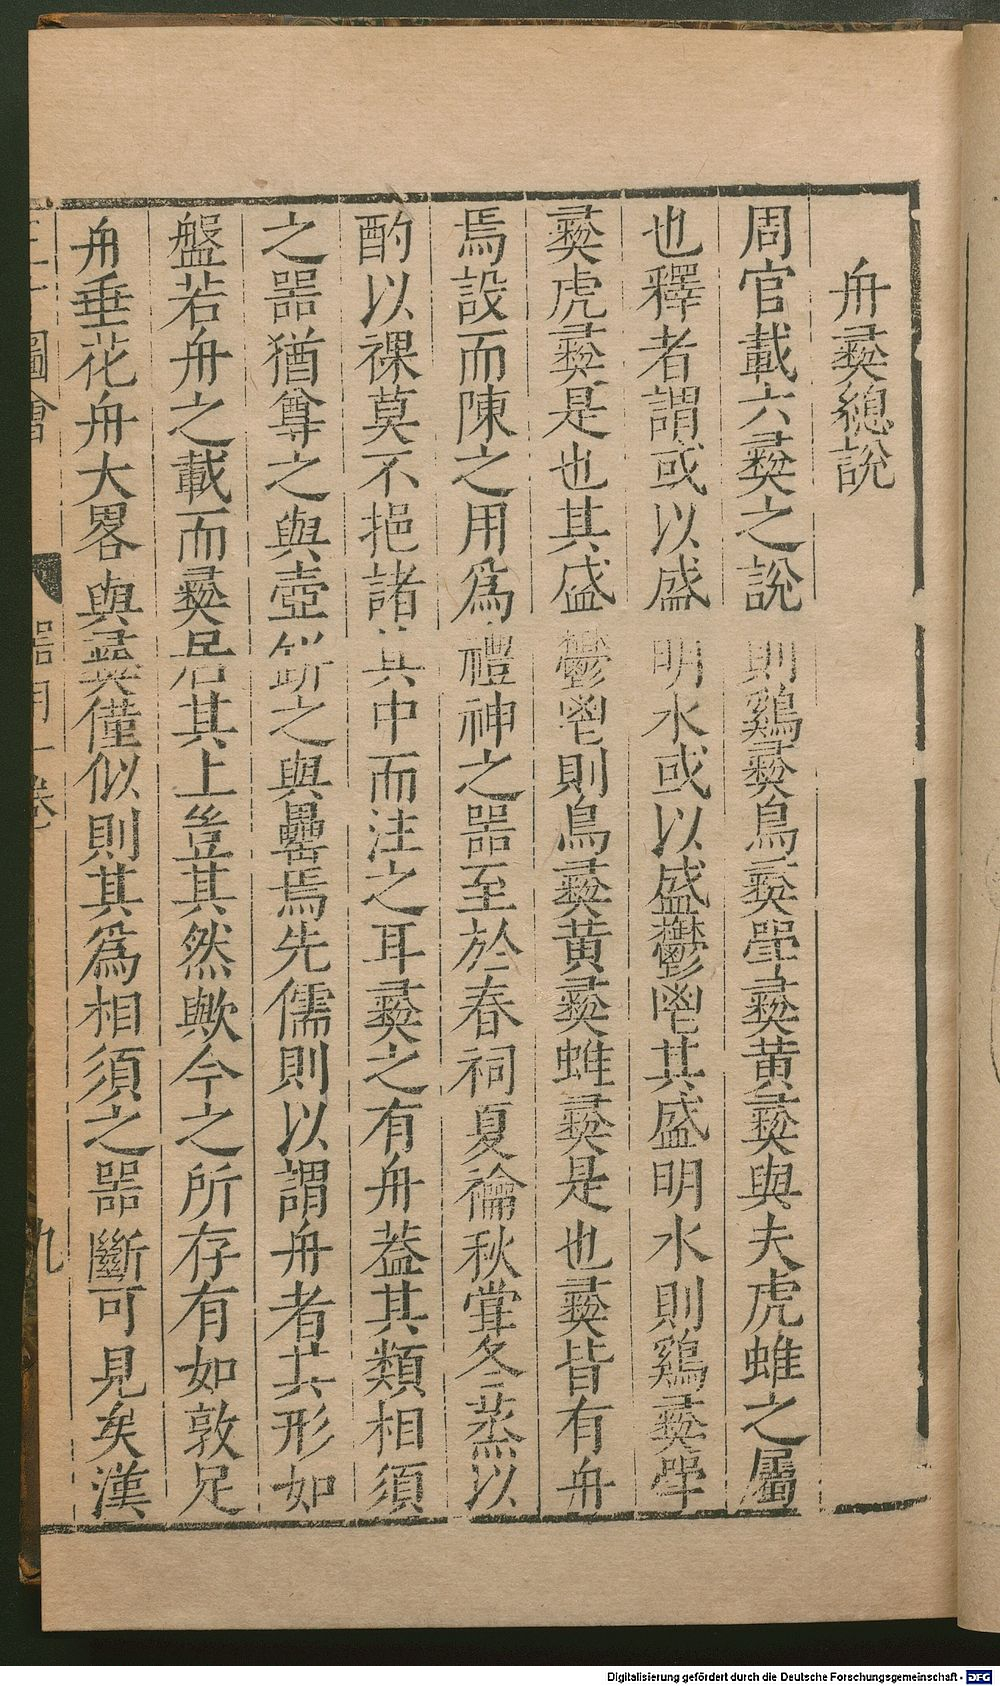 舟彛總説
周官載六彛之説則鷄彛鳥彛斝彛黄彛與夫虎蜼之屬
也釋者謂或以盛明水或以盛鬱鬯其盛明水則鷄彛斝
彛虎彛是也其盛鬱鬯則鳥彛黄彛蜼彛是也彛皆有舟
焉設而陳之用為禮神之器至於春祠夏禴秋甞冬蒸以
酌以裸莫不挹諸其中而注之耳彛之有舟葢其類相須
之器猶尊之與壺缾之與罍焉先儒則以謂舟者其形如
盤若舟之載而彛居其上豈其然歟今之所存有如敦足
舟垂花舟大畧與彛僅似則其為相須之器斷可見矣漢
三才圖會
器用一卷
九
Digitalisierung gefördert durch die Deutsche Forschungsgemeinschaft - DFG